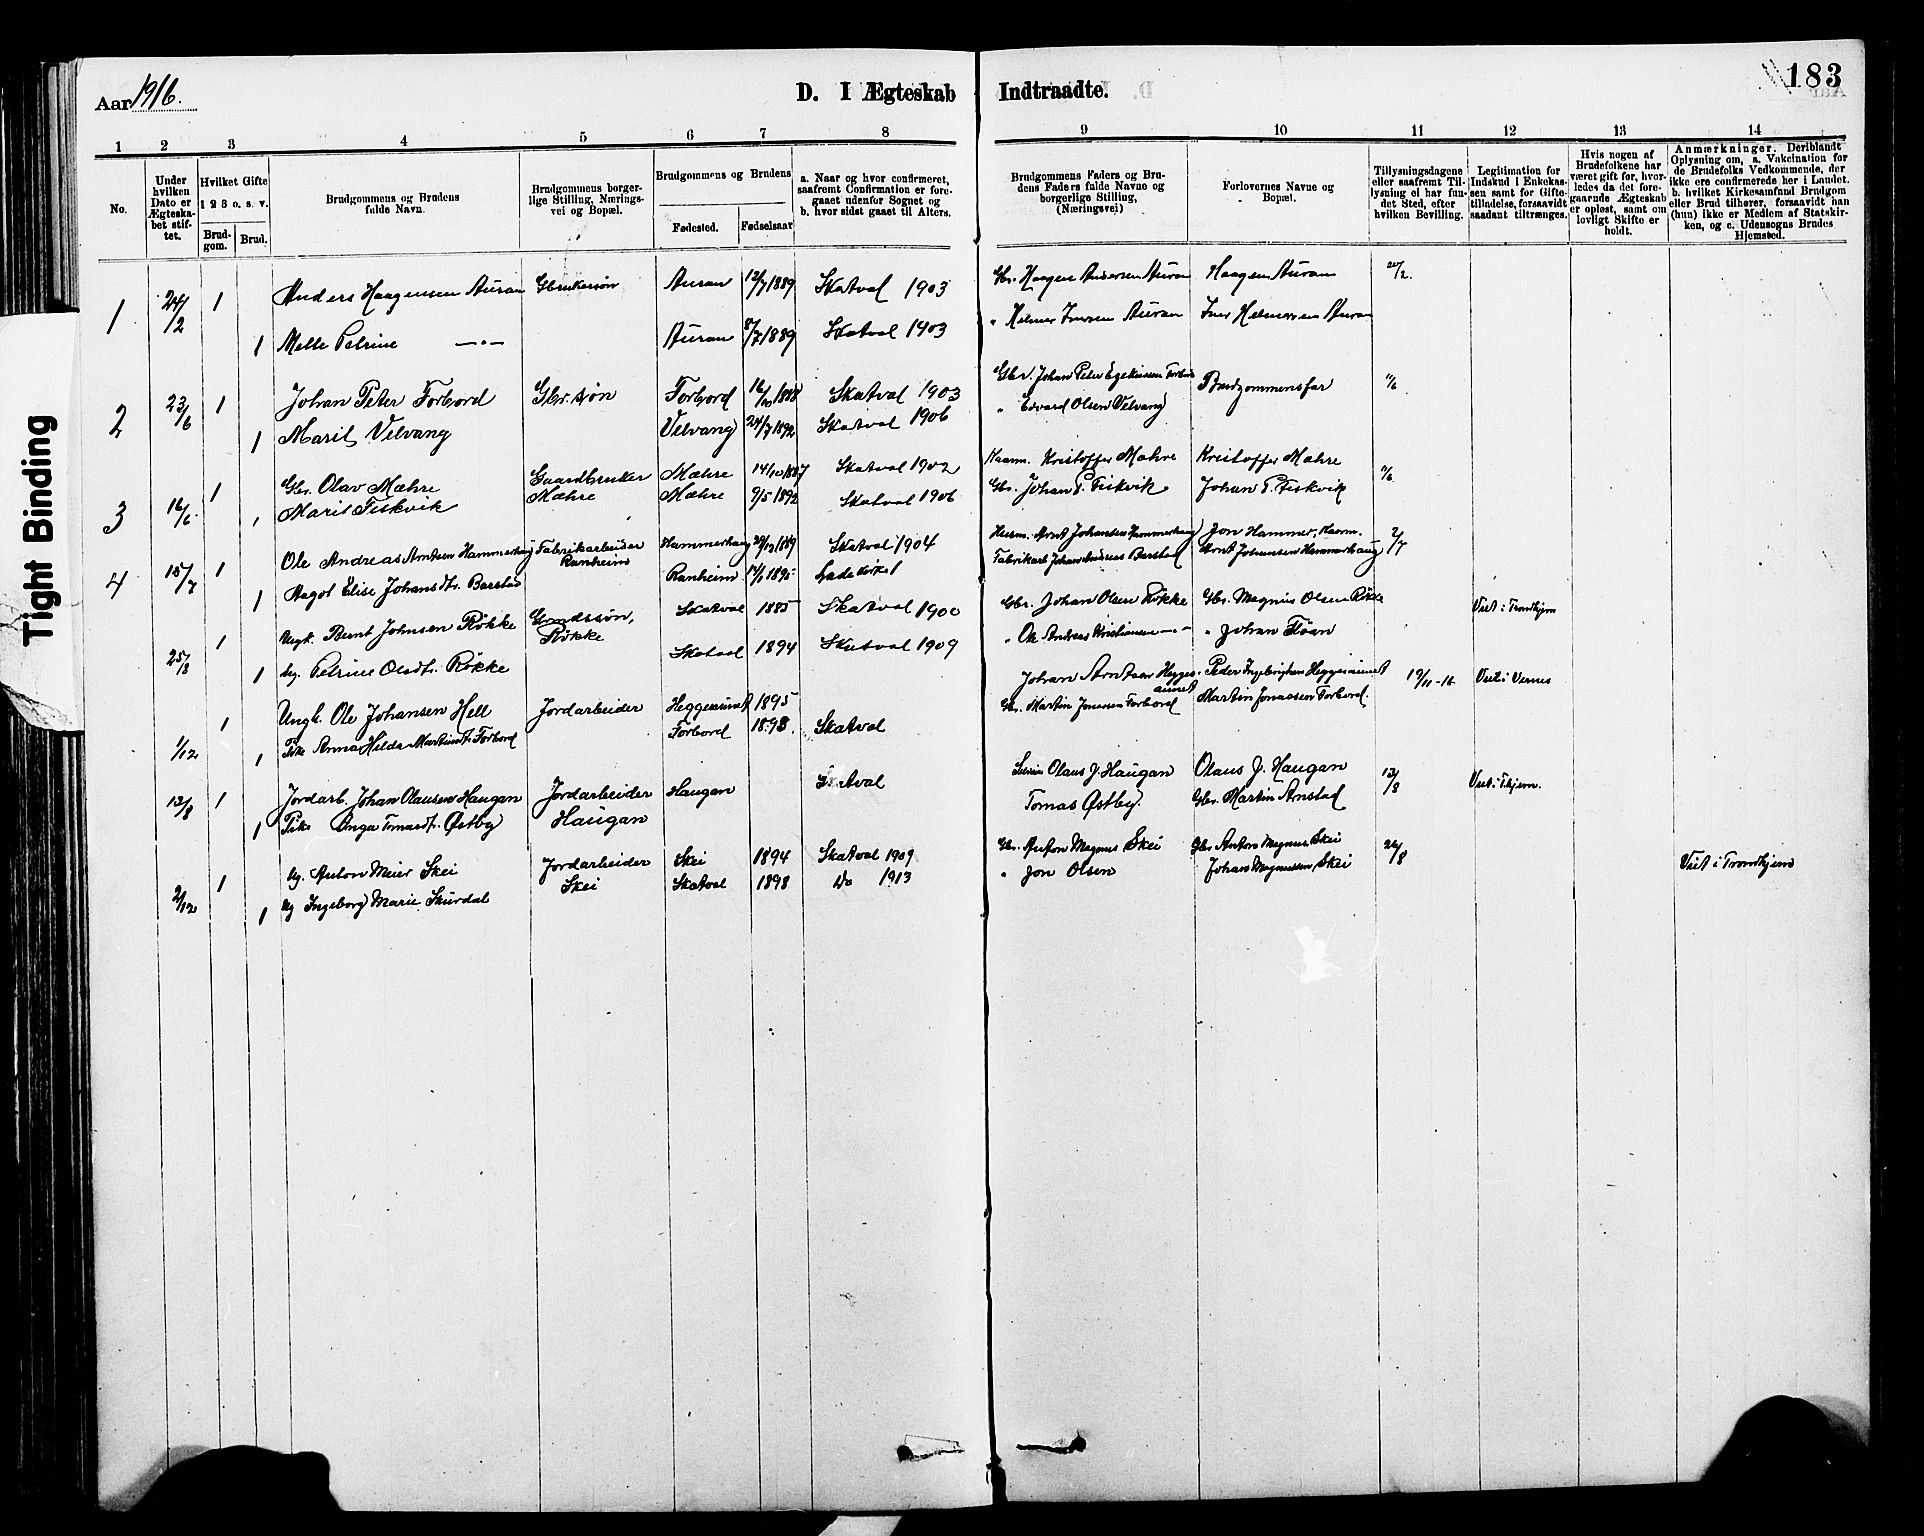 Aar 1916.
D. I Ægteskab Indtraadte.
183
Tight Binding
1 2 3 4 5 6 7 8 9 10 11 12 13 14
No.
Under hvilken Dato er Ægteskabet stiftet.
Hvilket Gifte 1 2 3 o. s. v.
Brudgom. Brud.
Brudgommens og Brudens fulde Navn.
Brudgommens borgerlige Stilling, Næringsvei og Bopæl.
Brudgommens og Brudens
Fødested. Fødselsaar
a. Naar og hvor confirmeret, saafremt Confirmation er foregaaet udenfor Sognet og b. hvor sidst gaaet til Alters.
Brudgommens Faders og Brudens Faders fulde Navne og borgerlige Stilling, (Næringsvei)
Forlovernes Navne og Bopæl.
Tillysningsdagene eller saafremt Tillysning ei har fundet Sted, efter hvilken Bevilling.
Legitimation for Indskud i Enkekassen samt for Giftetilladelse, forsaavidt saadant tiltrænges.
Hvis nogen af Brudefolkene har været gift før, hvorledes da det foregaaende Ægteskab er opløst, samt om lovligt Skifte er holdt.
Anmærkninger. Deriblandt Oplysning om, a. Vakcination for de Brudefolks Vedkommende, der ikke ere confirmerede her i Landet. b. hvilket Kirkesamfund Brudgom eller Brud tilhører, forsaavidt han (hun) ikke er Medlem af Statskirken, og c. Udensogns Brudes Hjemsted.
1 24/2 1 Anders Haagensen Auran Gbrukersøn Auran 12/7 1889 Skatval 1903 Gbr. Haagen Andersen Auran Haagen Auran 20/2.
1 Mette Petrine —"— Auran 8/7 1889 Skatval 1903 " Helmer Iversen Auran Iver Helmersen Auran
2 23/6 1 Johan Peter Forbord Gbr. søn Forbord 16/10 1888 Skatval 1903 Gbr. Johan Peter Forbord Brudgommens far 11/6
1 Marit Velvang Velvang 24/7 1892 Skatval 1906 " Edvard Olsen Velvang
3 16/6 1 Gbr. Olav Mæhre Gaardbruker Mæhre Mæhre 14/10 1887 Skatval 1902 Kaarm. Kristoffer Mæhre Kristoffer Mæhre 11/6
1 Marit Fiskvik Mæhre 9/5 1892 Skatval 1906 Gbr. Johan P. Fiskvik Johan P. Fiskvik
4 15/7 1 Ole Andreas Arntsen Hammerhaug Fabrikarbeider Ranheim Hammerhaug 29/12 1889 Skatval 1904 Husm. Arnt Johansen Hammerhaug Jon Hammer, Kaarm. 2/7
1 Aagot Elise Johansdtr. Barstad Ranheim 14/1 1895 Lade kirke Fabrikarb. Johan Andreas Barstad Arnt Johansen Hammerhaug
25/8 1 Ungk. Bernt Johnsen Røkke Grmdssøn, Røkke Skatval 1885 Skatval 1900 Gbr. Johan Olsen Røkke Gbr. Magnus Olsen Røkke Viet i Trondhjem
1 Ug. Petrine Olsdtr. Røkke Skatval 1894 Skatval 1909 " Ole Andreas Kristiansen —"— " Johan Fløan
1/12 1 Ungk. Ole Johansen Hell Jordarbeider Heggesaunet 1895 Johan Arntsen Heggesaunet Peder Ingebrigtsen Heggesaunet 19/11-16 Viet i Vernes
1 Pike Anna Helda Martinsdt. Forbord Forbord 1893. Skatval Gbr. Martin Jonassen Forbord Martin Jonassen Forbord.
13/8 1 Jordarb. Johan Olausen Haugan Jordarbeider Haugan Haugan Skatval Olaus J. Haugan Olaus J. Haugan 13/8 Viet i Thjem.
1 Pike Inga Tomasdt. Østby Tomas Østby. Gbr. Martin Arnstad
2/12 1 Ug. Anton Meier Skei Jordarbeider Skei Skei 1894 Skatval 1909 Gbr. Anton Magnus Skei Gbr Anton Magnus Skei 26/8 Viet i Trondhjem
1 Ug Ingeborg Marie Skurdal Skatval 1898 Do 1913 " Jon Olsen Johan Magnussen Skei